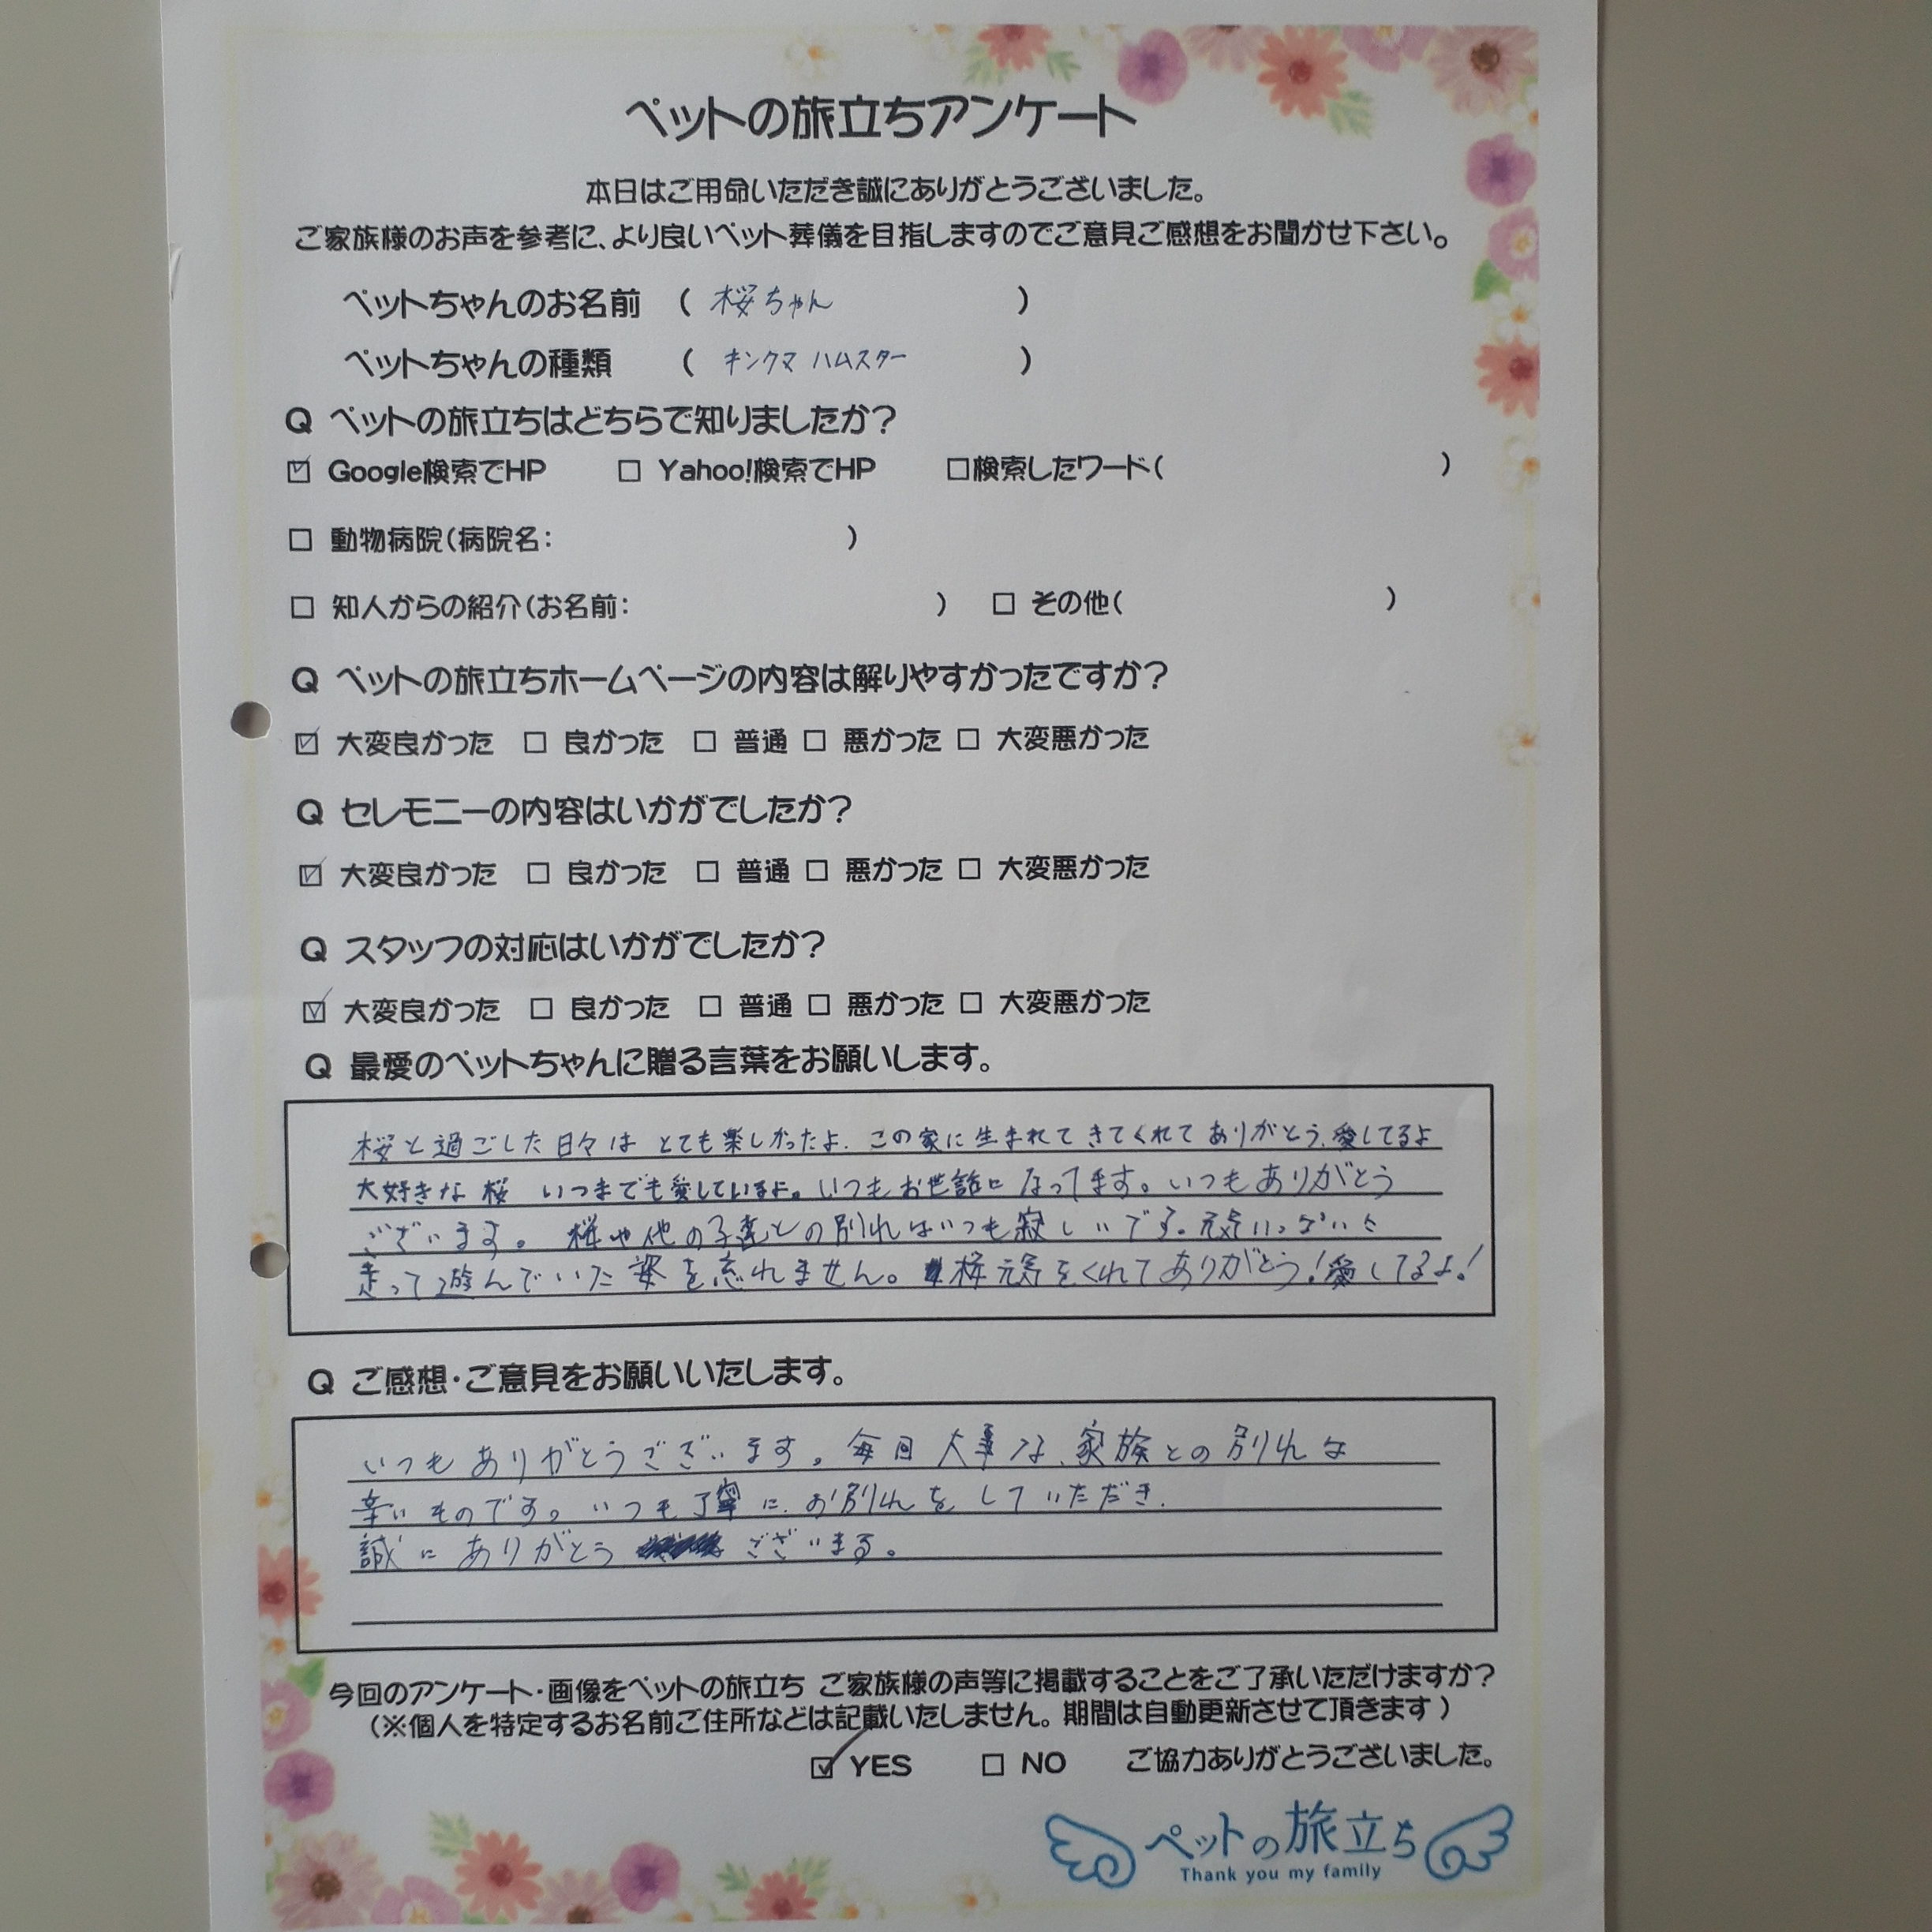 ペットの旅立ちアンケート
本日はご用命いただき誠にありがとうございました。
ご家族様のお声を参考に、より良いペット葬儀を目指しますのでご意見ご感想をお聞かせ下さい。
ペットちゃんのお名前 ( 桜ちゃん )
ペットちゃんの種類 ( キンクマ ハムスター )
Q ペットの旅立ちはどちらで知りましたか?
☑ Google検索でHP □ Yahoo!検索でHP □検索したワード( )
□ 動物病院(病院名: )
□ 知人からの紹介(お名前: ) □ その他( )
Q ペットの旅立ちホームページの内容は解りやすかったですか?
☑ 大変良かった □ 良かった □ 普通 □ 悪かった □ 大変悪かった
Q セレモニーの内容はいかがでしたか?
☑ 大変良かった □ 良かった □ 普通 □ 悪かった □ 大変悪かった
Q スタッフの対応はいかがでしたか?
☑ 大変良かった □ 良かった □ 普通 □ 悪かった □ 大変悪かった
Q 最愛のペットちゃんに贈る言葉をお願いします。
桜と過ごした日々は とても楽しかったよ. この家に生まれてきてくれてありがとう.愛してるよ
大好きな桜 いつまでも愛しているよ。いつもお世話になってます。いつもありがとう
ございます。 桜や他の子達との別れはいつも寂しいです。元気いっぱいに
走って遊んでいた姿を忘れません。 桜元気をくれてありがとう!愛してるよ!
Q ご感想・ご意見をお願いいたします。
いつもありがとうございます。毎回大事な、家族との別れは
辛いものです。いつも丁寧に.お別れをしていただき.
誠にありがとう ございまる。
今回のアンケート・画像をペットの旅立ち ご家族様の声等に掲載することをご了承いただけますか?
(※個人を特定するお名前ご住所などは記載いたしません。期間は自動更新させて頂きます)
☑ YES □ NO ご協力ありがとうございました。
ペットの旅立ち
Thank you my family